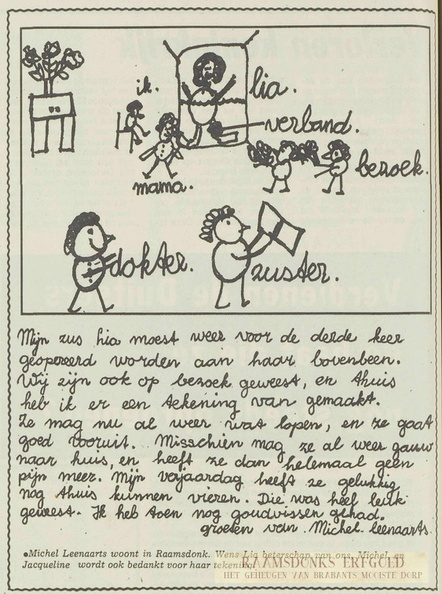 ik. lia.
verband.
mama. bezoek.
dokter. zuster.
Mijn zus lia moest weer voor de derde keer
geopereerd worden aan haar bovenbeen.
Wij zijn ook op bezoek geweest, en thuis
heb ik er een tekening van gemaakt.
Ze mag nu al weer wat lopen, en ze gaat
goed vooruit. Misschien mag ze al weer gauw
naar huis, en heeft ze dan helemaal geen
pijn meer. Mijn verjaardag heeft ze gelukkig
nog thuis kunnen vieren. Die was heel leuk
geweest. Ik heb toen nog goudvissen gehad.
groeten van Michel Leenaarts.
●Michel Leenaarts woont in Raamsdonk. Wens Lia beterschap van ons, Michel, en
Jacqueline wordt ook bedankt voor haar tekening.
RAAMSDONKS ERFGOED
HET GEHEUGEN VAN BRABANTS MOOISTE DORP